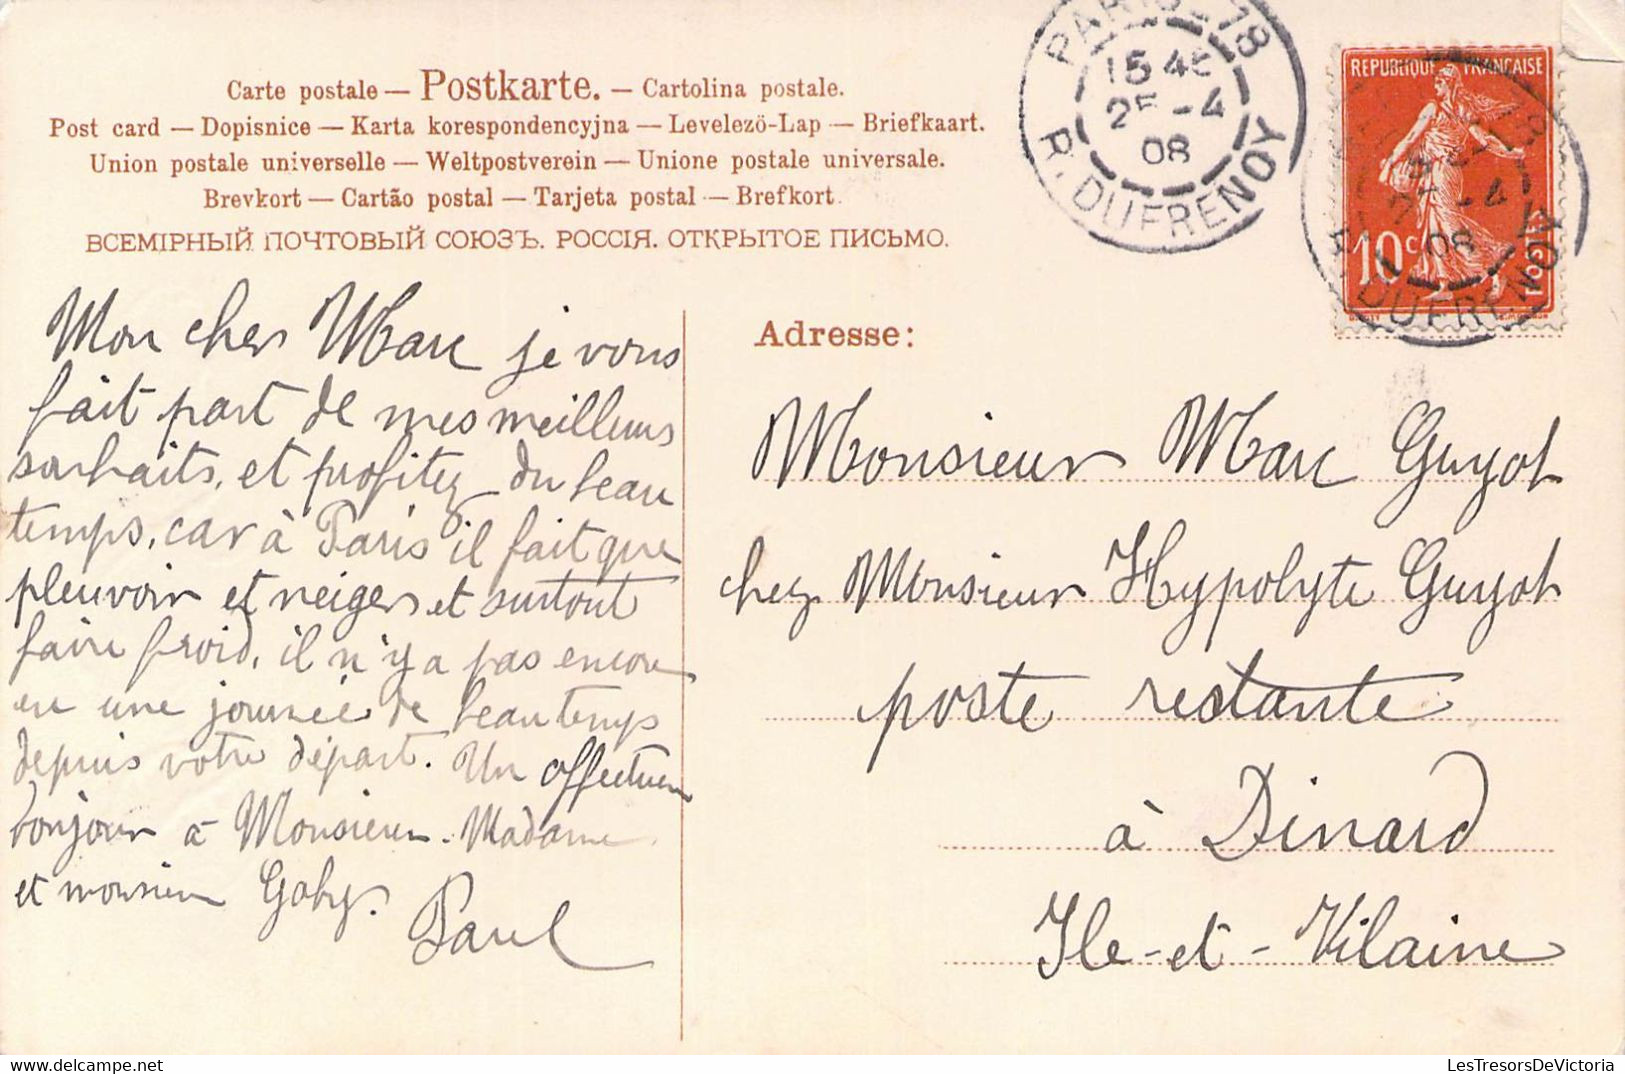 Carte postale — Postkarte. — Cartolina postale.
Post card — Dopisnice — Karta korespondencyjna — Levelezö-Lap — Briefkaart.
Union postale universelle — Weltpostverein — Unione postale universale.
Brevkort — Cartão postal — Tarjeta postal — Brefkort.
ВСЕМІРНЫЙ ПОЧТОВЫЙ СОЮЗЪ. РОССІЯ. ОТКРЫТОЕ ПИСЬМО.
PARIS - 78
15 45
25 - 4
08
R. DUFRENOY
REPUBLIQUE FRANÇAISE
10 c
POSTES
08
R. DUFRENOY
Mon cher Marc je vous
fait part de mes meilleurs
souhaits, et profitez du beau
temps, car à Paris il fait que
pleuvoir et neiger et surtout
faire froid, il n'y a pas encore
eu une journée de beau temps
depuis votre départ. Un affectueux
bonjour à Monsieur. Madame
et monsieur Gaby.
Paul
Adresse:
Monsieur Marc Guyot
chez Monsieur Hypolyte Guyot
poste restante
à Dinard
Ile-et-Vilaine
LesTresorsDeVictoria